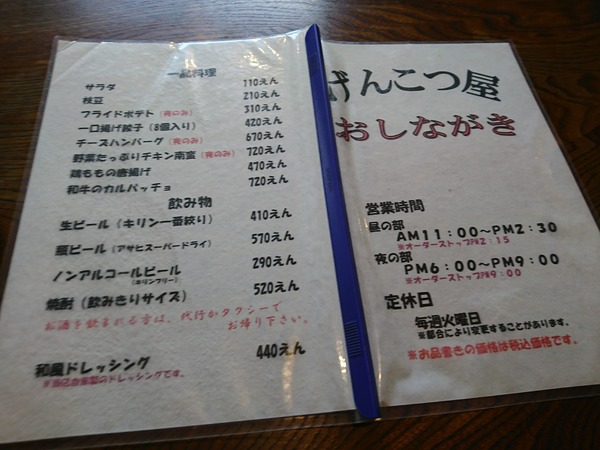 一品料理
サラダ 110えん
枝豆 210えん
フライドポテト (夜のみ) 310えん
一口揚げ餃子 (8個入り) 420えん
チーズハンバーグ (夜のみ) 670えん
野菜たっぷりチキン南蛮 (夜のみ) 720えん
鶏ももの唐揚げ 470えん
和牛のカルパッチョ 720えん
飲み物
生ビール (キリン一番絞り) 410えん
瓶ビール (アサヒスーパードライ) 570えん
ノンアルコールビール 290えん
(キリンフリー)
焼酎 (飲みきりサイズ) 520えん
お酒を飲まれる方は、代行かタクシーで
お帰り下さい。
和風ドレッシング 440えん
※当店自家製のドレッシングです。
げんこつ屋
おしながき
営業時間
昼の部
AM11:00~PM2:30
※オーダーストップPM2:15
夜の部
PM6:00~PM9:00
※オーダーストップPM9:00
定休日
毎週火曜日
※都合により変更することがあります。
※お品書きの価格は税込価格です。